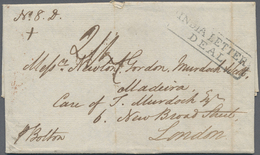 No. 8. D.
INDIA LETTER
DEAL
2/4
Messrs. Newton, Gordon, Murdoch &
Madeira,
Care of T. Murdoch Esqr
6. New Broad Street,
London
Bolton